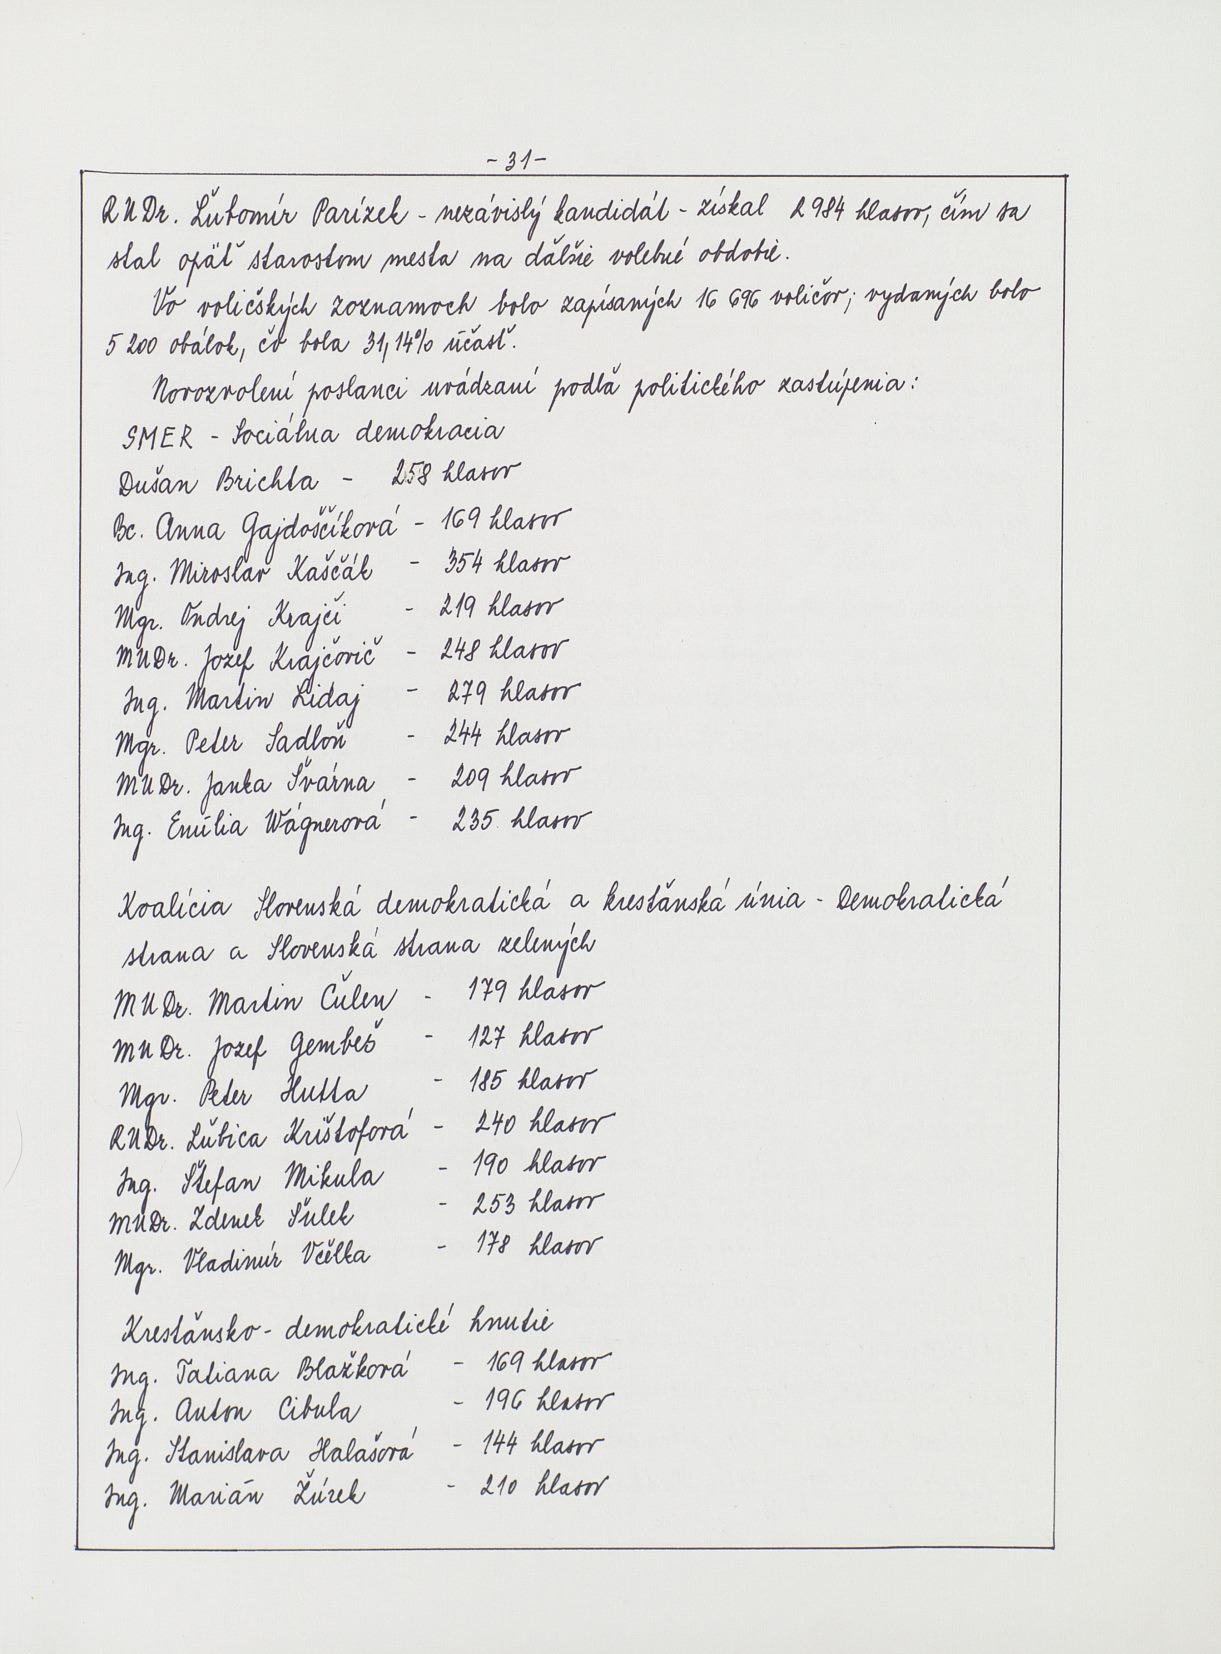 - 31 -
RNDr. Ľubomír Parízek - nezávislý kandidát - získal 2 984 hlasov, čím sa
stal opäť starostom mesta na ďalšie volebné obdobie.
Vo voličských zoznamoch bolo zapísaných 16 696 voličov; vydaných bolo
5 200 obálok, čo bola 31,14% účasť.
Novozvolení poslanci uvádzaní podľa politického zastúpenia:
SMER - Sociálna demokracia
Dušan Brichta - 258 hlasov
Bc. Anna Gajdoščíková - 169 hlasov
Ing. Miroslav Kaščák - 354 hlasov
Mgr. Ondrej Krajči - 219 hlasov
MUDr. Jozef Krajčovič - 248 hlasov
Ing. Martin Lidaj - 279 hlasov
Mgr. Peter Sadloň - 244 hlasov
MUDr. Janka Švárna - 209 hlasov
Ing. Emília Wágnerová - 235 hlasov
Koalícia Slovenská demokratická a kresťanská únia - Demokratická
strana a Slovenská strana zelených
MUDr. Martin Čulen - 179 hlasov
MUDr. Jozef Gembeš - 127 hlasov
Mgr. Peter Hutta - 185 hlasov
RNDr. Ľubica Krištoforá - 240 hlasov
Ing. Štefan Mikula - 190 hlasov
MUDr. Zdenek Šulek - 253 hlasov
Mgr. Vladimír Včelka - 178 hlasov
Kresťansko - demokratické hnutie
Ing. Tatiana Blažková - 169 hlasov
Ing. Anton Cibula - 196 hlasov
Ing. Stanislava Halašová - 144 hlasov
Ing. Marián Žúrek - 210 hlasov